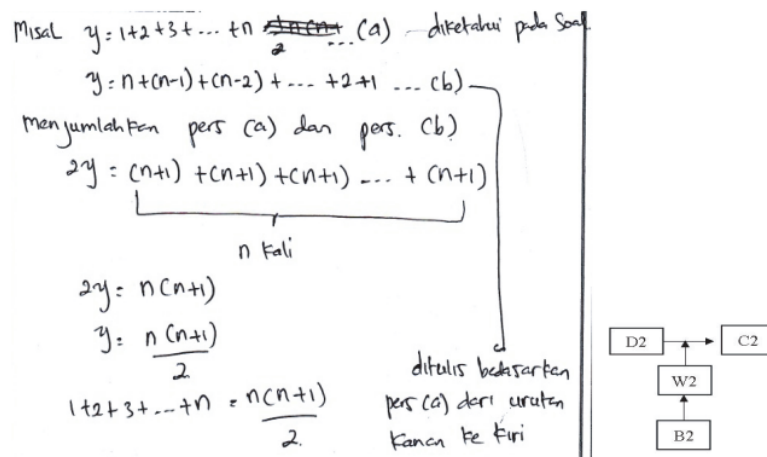 Misal y = 1+2+3+ ... +n ... (a) diketahui pada Soal
y = n+(n-1)+(n-2)+ ... +2+1 ... (b)
Menjumlahkan pers (a) dan pers. (b)
2y = (n+1) +(n+1) +(n+1) ... + (n+1)
n kali
2y = n(n+1)
y = n(n+1)/2
1+2+3+...+n = n(n+1)/2.
ditulis bedasarkan
pers (a) dari urutan
kanan ke kiri
D2
C2
W2
B2